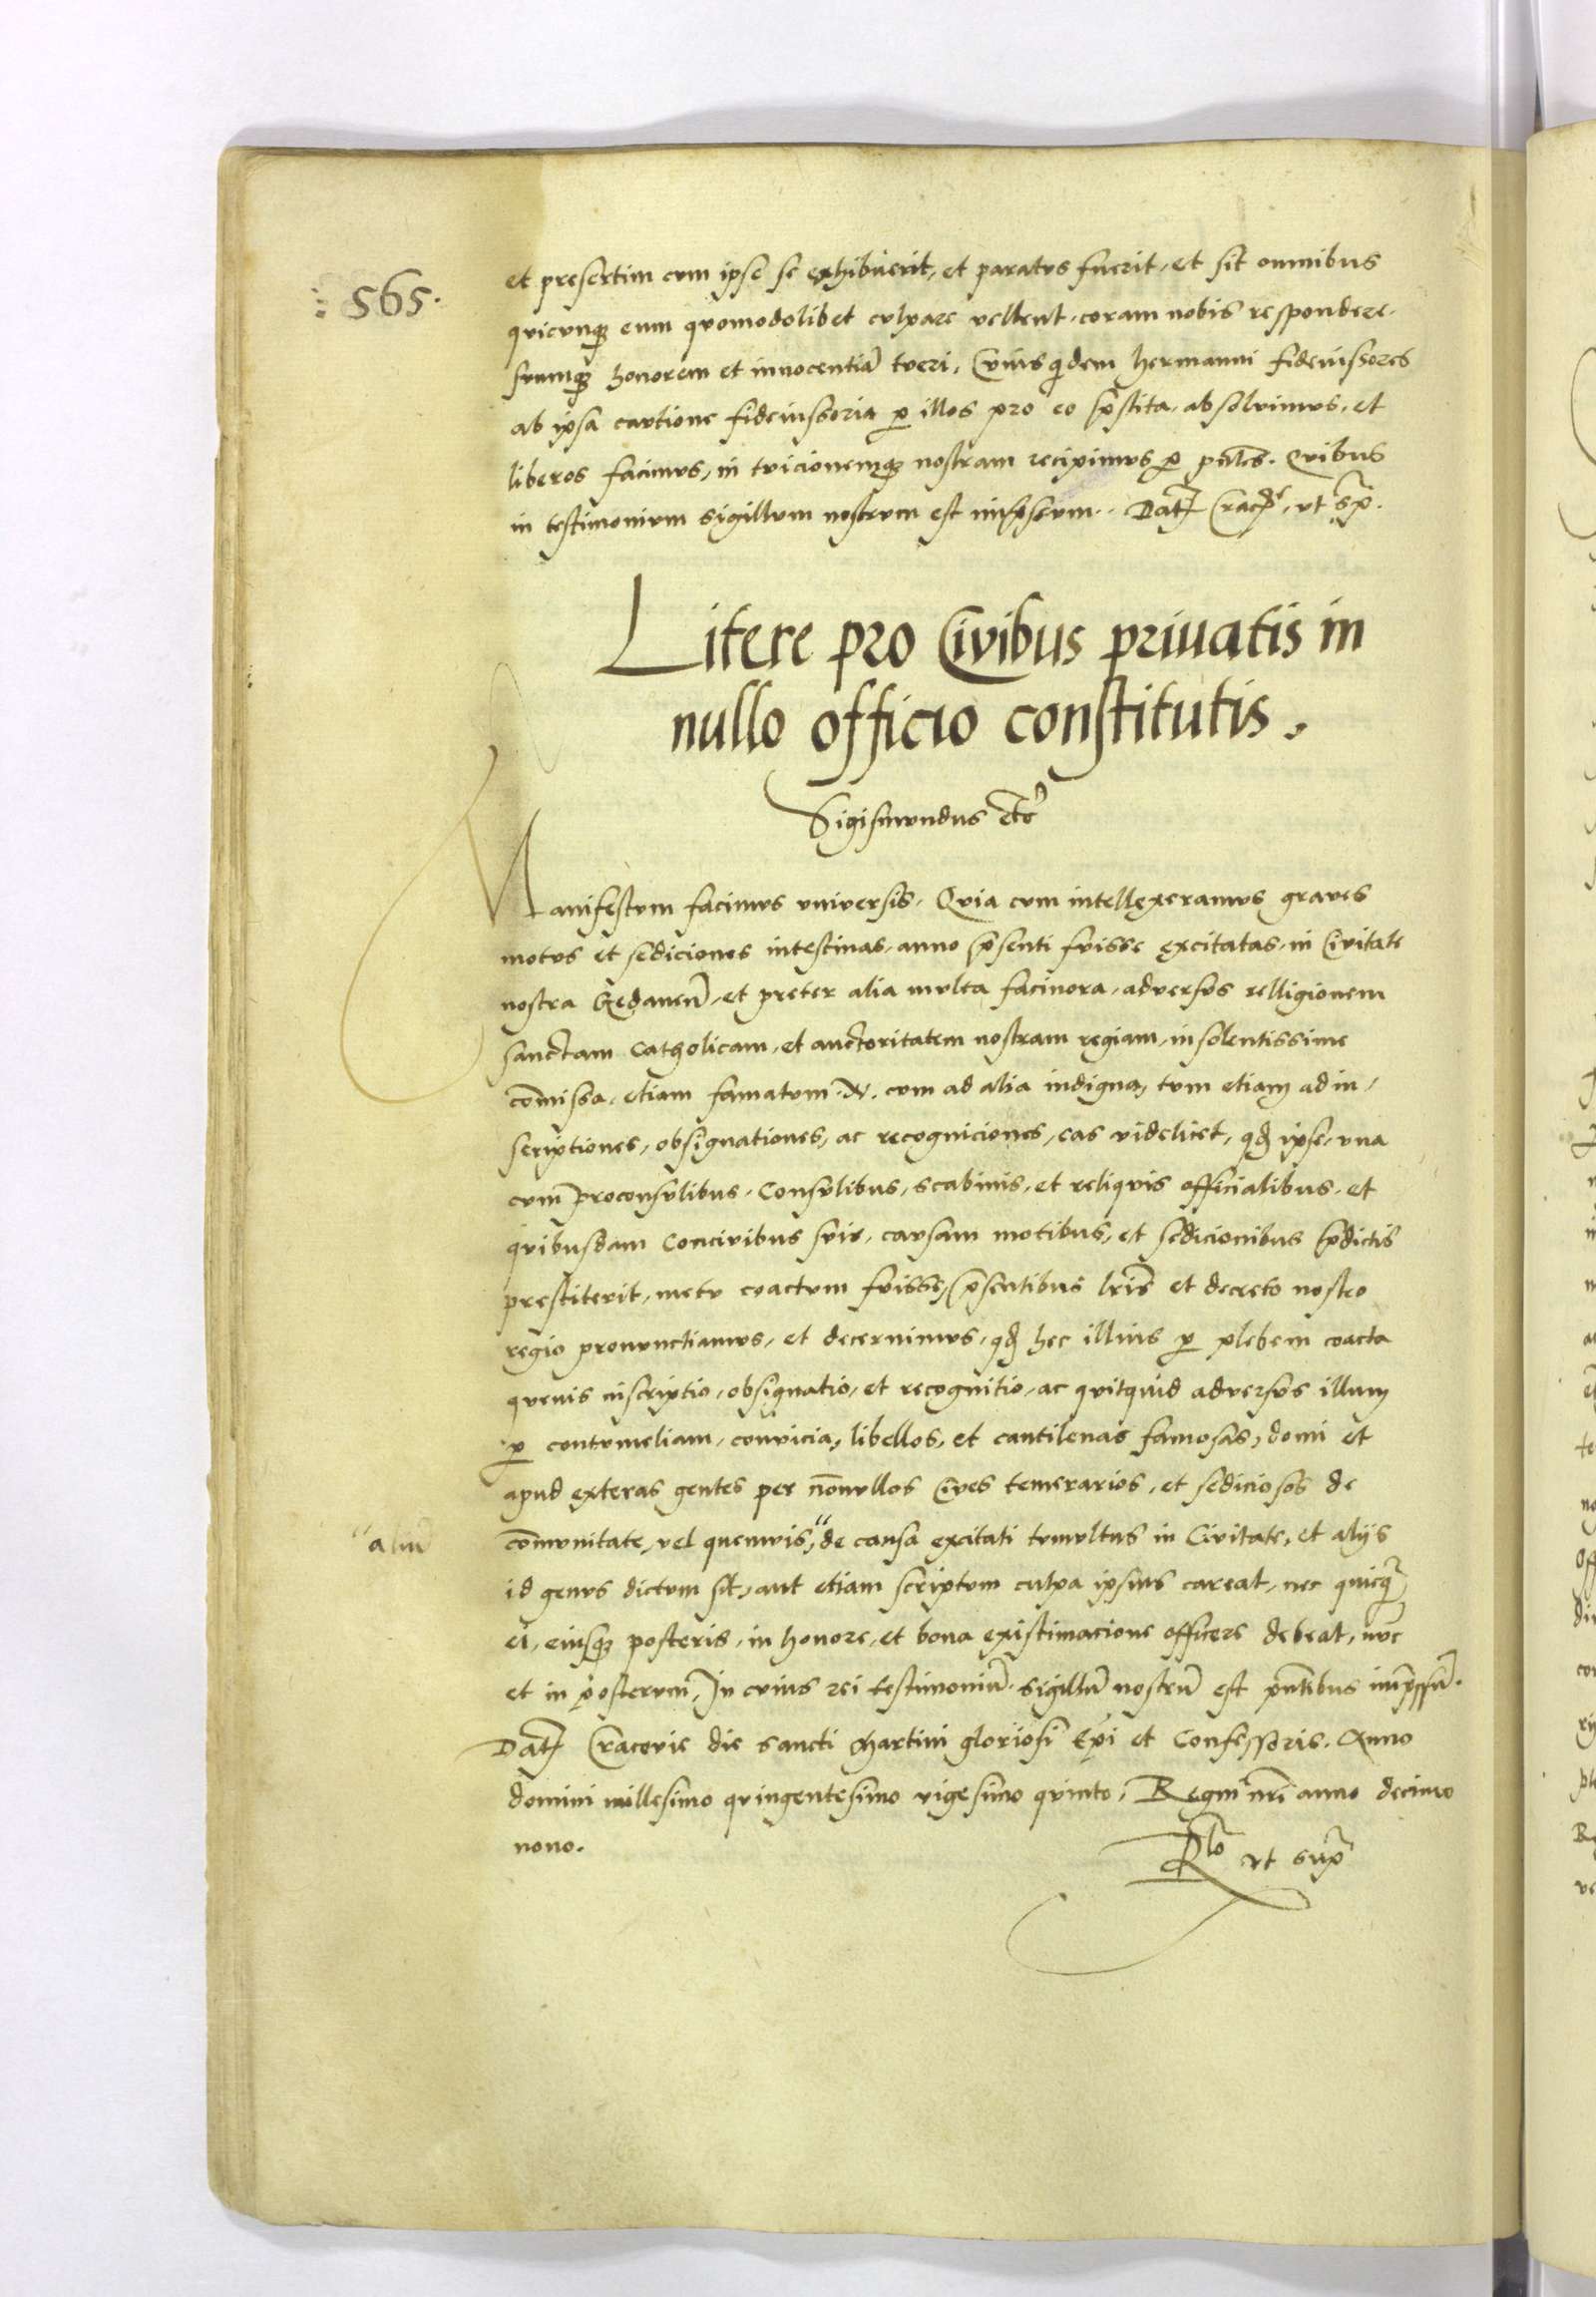 565.
et presertim cum ipse se exhibuerit, et paratus fuerit, et sit omnibus
quicunq; eum quomodolibet culpare vellent, coram nobis respondere.
suumq; honorem et innocentiã tveri, Cuius qdem hermanni fideiussores
ab ipsa cautione fideiussoria p illos pro eo p̃stita, absolvimus, et
liberos facimus, in tuicionemq; nostram recipimus p pñtes. Quibus
in testimonium sigillum nostrum est imp̃ssum. Dat Crac̃, ut sup̃.
Litere pro Civibus privatis in
nullo officio constitutis.
Sigismundus etc̃
Manifestum facimus universis. Quia cum intellexeramus graves
motus et sediciones intestinas, anno p̃senti fuisse excitatas, in Civitate
nostra Gedaneñ, et preter alia multa facinora, adversus relligionem
sanctam Catholicam, et auctoritatem nostram regiam, insolentissime
com̃issa, etiam famatum .N. cum ad alia indigna, tum etiam ad in,
scriptiones, obsignationes, ac recogniciones, eas videlicet, qđ ipse, una
cum proconsulibus, Consulibus, scabinis, et reliquis officialibus, et
quibusdam Concivibus suis, causam motibus, et sedicionibus p̃dictis
prestiterit, metu coactum fuisse, p̃sentibus lr̃is et decreto nostro
regio pronunctiamus, et decernimus, qđ hec illius p plebem coacta
quevis inscriptio, obsignatio, et recognitio, ac quitquid adversus illum
p contumeliam, convicia, libellos, et cantilenas famosas, domi et
apud exteras gentes per nõnullos Cives temerarios, et sediciosos de
"aliũ
com̃unitate, vel quemvis," de causa excitati tumultus in Civitate, et alijs
id genus dictum sit, aut etiam scriptum culpa ipsius careat, nec quicq̃
ei, eiusq; posteris, in honore, et bona existimacione officere debeat, nũc
et in posterum, In cuius rei testimoniũ sigillũ nostrũ est p̃ntibus imp̃ssũ.
Dat Cracovie die sancti Martini gloriosi Ep̃i et Confessoris. Anno
domini millesimo quingentesimo vigesimo quinto, Regni nr̃i anno decimo
nono.
Rlo ut sup̃